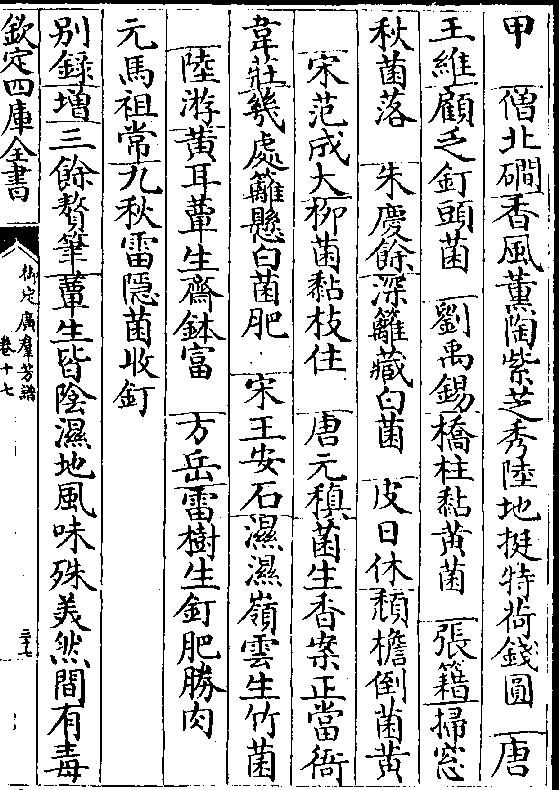 甲　僧北磵香風薰陶紫芝秀陸地挺特荷錢圓　唐
王維顧乏釘頭菌　劉禹錫橋柱黏黄菌　張籍掃窓
秋菌落　朱慶餘深籬藏白菌　皮日休頹檐倒菌黄
宋范成大柳菌黏枝住　唐元稹菌生香案正當衙
韋莊幾處籬懸白菌肥　宋王安石濕濕嶺雲生竹菌
陸游黄耳蕈生齋鉢富　方岳雷樹生釘肥勝肉
元馬祖常九秋雷隱菌收釘
别録增三餘贅筆蕈生皆陰濕地風味殊美然間有毒
欽定四庫全書
御定廣羣芳譜
卷十七
三十七